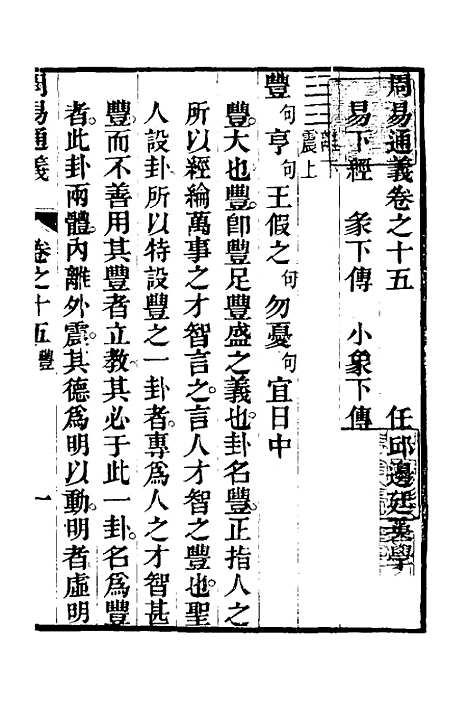 周易通義卷之十五
任邱邊廷英學
易下經 彖下傳 小象下傳
離下
震上
豐句亨句王假之句勿憂句宜日中
豐大也豐卽豐足豐盛之義也卦名豐正指人之
所以經綸萬事之才智言之言人才智之豐也聖
人設卦所以特設豐之一卦者專爲人之才智甚
豐而不善用其豐者立教其必于此一卦名爲豐
者此卦兩體內離外震其德爲明以動明者虛明
周易通義 卷之十五 豐 一